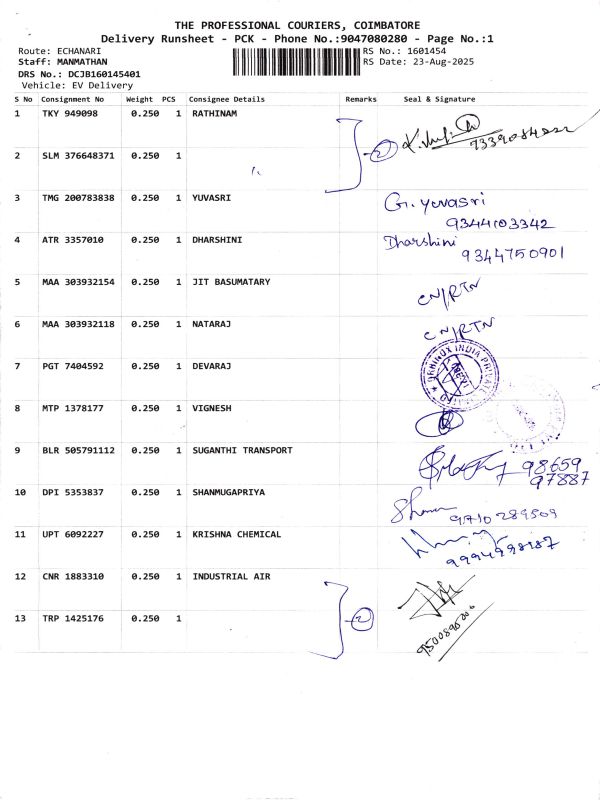 THE PROFESSIONAL COURIERS, COIMBATORE
Delivery Runsheet - PCK - Phone No.:9047080280 - Page No.:1
Route: ECHANARI RS No.: 1601454
Staff: MANMATHAN RS Date: 23-Aug-2025
DRS No.: DCJB160145401
Vehicle: EV Delivery
S No Consignment No Weight PCS Consignee Details Remarks Seal & Signature
1 TKY 949098 0.250 1 RATHINAM
2 SLM 376648371 0.250 1 2
3 TMG 200783838 0.250 1 YUVASRI G. Yuvasri
9344103342
4 ATR 3357010 0.250 1 DHARSHINI Dharshini
9344750901
5 MAA 303932154 0.250 1 JIT BASUMATARY CN/RTN
6 MAA 303932118 0.250 1 NATARAJ CN/RTN
7 PGT 7404592 0.250 1 DEVARAJ
8 MTP 1378177 0.250 1 VIGNESH
9 BLR 505791112 0.250 1 SUGANTHI TRANSPORT 98659
97887
10 DPI 5353837 0.250 1 SHANMUGAPRIYA
9710289509
11 UPT 6092227 0.250 1 KRISHNA CHEMICAL
12 CNR 1883310 0.250 1 INDUSTRIAL AIR
13 TRP 1425176 0.250 1 2